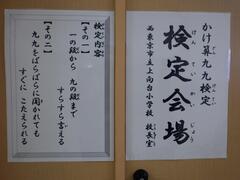 かけ算九九検定
検定会場
西東京市立上向台小学校 校長室
検定内容
【その一】
一の段から 九の段まで
すらすら言える
【その二】
九九をばらばらに聞かれても
すぐに こたえられる